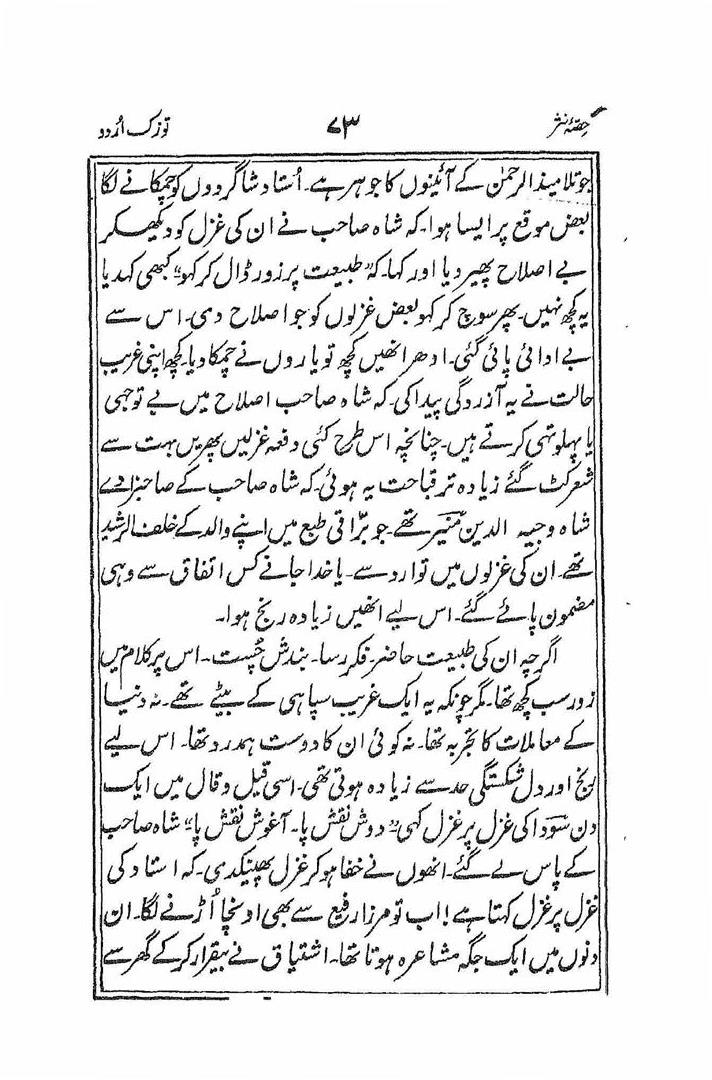 حصۂ نثر ۷۳ توزک اُردو
جو تلامیذ الرحمٰن کے آئینوں کا جوہر ہے۔ اُستاد شاگردوں کو چمکانے لگا
بعض موقع پر ایسا ہوا۔ کہ شاہ صاحب نے ان کی غزل کو دیکھکر
بے اصلاح پھیر دیا اور کہا۔ کہ "طبیعت پر زور ڈال کر کہو" کبھی کہدیا
یہ کچھ نہیں۔ پھر سوچ کر کہو بعض غزلوں کو جو اصلاح دی۔ اس سے
بے ادائی پائی گئی۔ ادھر انھیں کچھ تو یاروں نے چمکا دیا۔ کچھ اپنی غریب
حالت نے یہ آزردگی پیدا کی۔ کہ شاہ صاحب اصلاح میں بے توجہی
یا پہلو تہی کرتے ہیں۔ چنانچہ اس طرح کئی دفعہ غزلیں پھریں بہت سے
شعر کٹ گئے زیادہ تر قباحت یہ ہوئی۔ کہ شاہ صاحب کے صاحبزادے
شاہ وجیہ الدین منیر تھے۔ جو برّاقی طبع میں اپنے والد کے خلف الرشید
تھے۔ ان کی غزلوں میں توارد سے۔ یا خدا جانے کس اتفاق سے وہی
مضمون پائے گئے۔ اس لیے انھیں زیادہ رنج ہوا۔
اگرچہ ان کی طبیعت حاضر۔ فکر رسا۔ بندش چُست۔ اس پر کلام میں
زور سب کچھ تھا۔ مگر چونکہ یہ ایک غریب سپاہی کے بیٹے تھے۔ نہ دنیا
کے معاملات کا تجربہ تھا۔ نہ کوئی ان کا دوست ہمدرد تھا۔ اس لیے
رنج اور دل شکستگی حد سے زیادہ ہوتی تھی۔ اسی قیل و قال میں ایک
دن سودا کی غزل پر غزل کہی "دوش نقش پا۔ آغوش نقش پا" شاہ صاحب
کے پاس لے گئے۔ انھوں نے خفا ہو کر غزل پھینکدی۔ کہ استاد کی
غزل پر غزل کہتا ہے! اب تو مرزا رفیع سے بھی اونچا اُڑنے لگا۔ ان
دنوں میں ایک جگہ مشاعرہ ہوتا تھا۔ اشتیاق نے بیقرار کر کے گھر سے